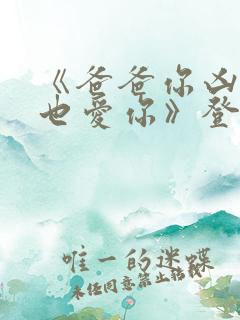 《爸爸你凶
也爱你》登
唯一的迷蝶
未经同意禁止转载